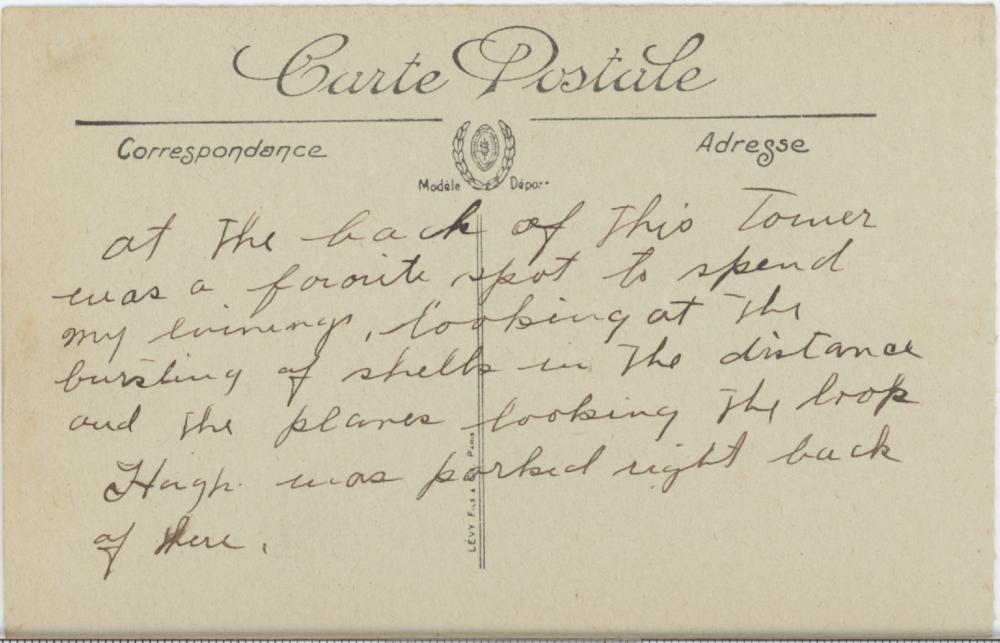 Carte Postale
Correspondance
Adresse
Modèle Dépo
at the back of this Tower
was a favorite spot to spend
my evenings, looking at the
bursting of shells in the distance
and the planes looking the loop
Hugh was parked right back
of there.
LÉVY FILS & PARIS